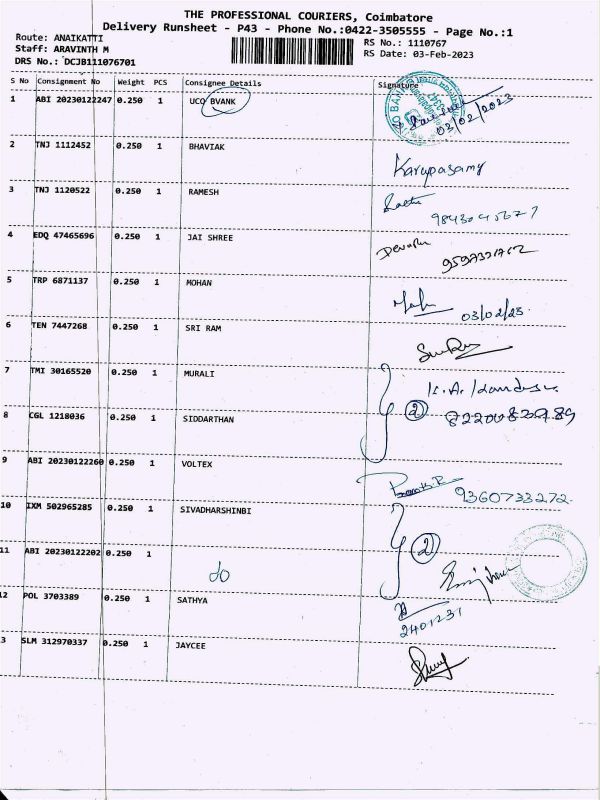 THE PROFESSIONAL COURIERS, Coimbatore
Delivery Runsheet - P43 - Phone No.:0422-3505555 - Page No.:1
Route: ANAIKATTI
Staff: ARAVINTH M RS No.: 1110767
DRS No.: DCJB111076701 RS Date: 03-Feb-2023
S No Consignment No Weight PCS Consignee Details Signature
1 ABI 20230122247 0.250 1 UCO BVANK
03/02/2023
2 TNJ 1112452 0.250 1 BHAVIAK
Karupasamy
3 TNJ 1120522 0.250 1 RAMESH
4 EDQ 47465696 0.250 1 JAI SHREE
5 TRP 6871137 0.250 1 MOHAN
03/02/23
6 TEN 7447268 0.250 1 SRI RAM
7 TMI 30165520 0.250 1 MURALI
K.A.
2
8 CGL 1218036 0.250 1 SIDDARTHAN
9 ABI 20230122260 0.250 1 VOLTEX
9360733272
10 IXM 502965285 0.250 1 SIVADHARSHINBI
2
11 ABI 20230122202 0.250 1
do
12 POL 3703389 0.250 1 SATHYA
2401231
3 SLM 312970337 0.250 1 JAYCEE